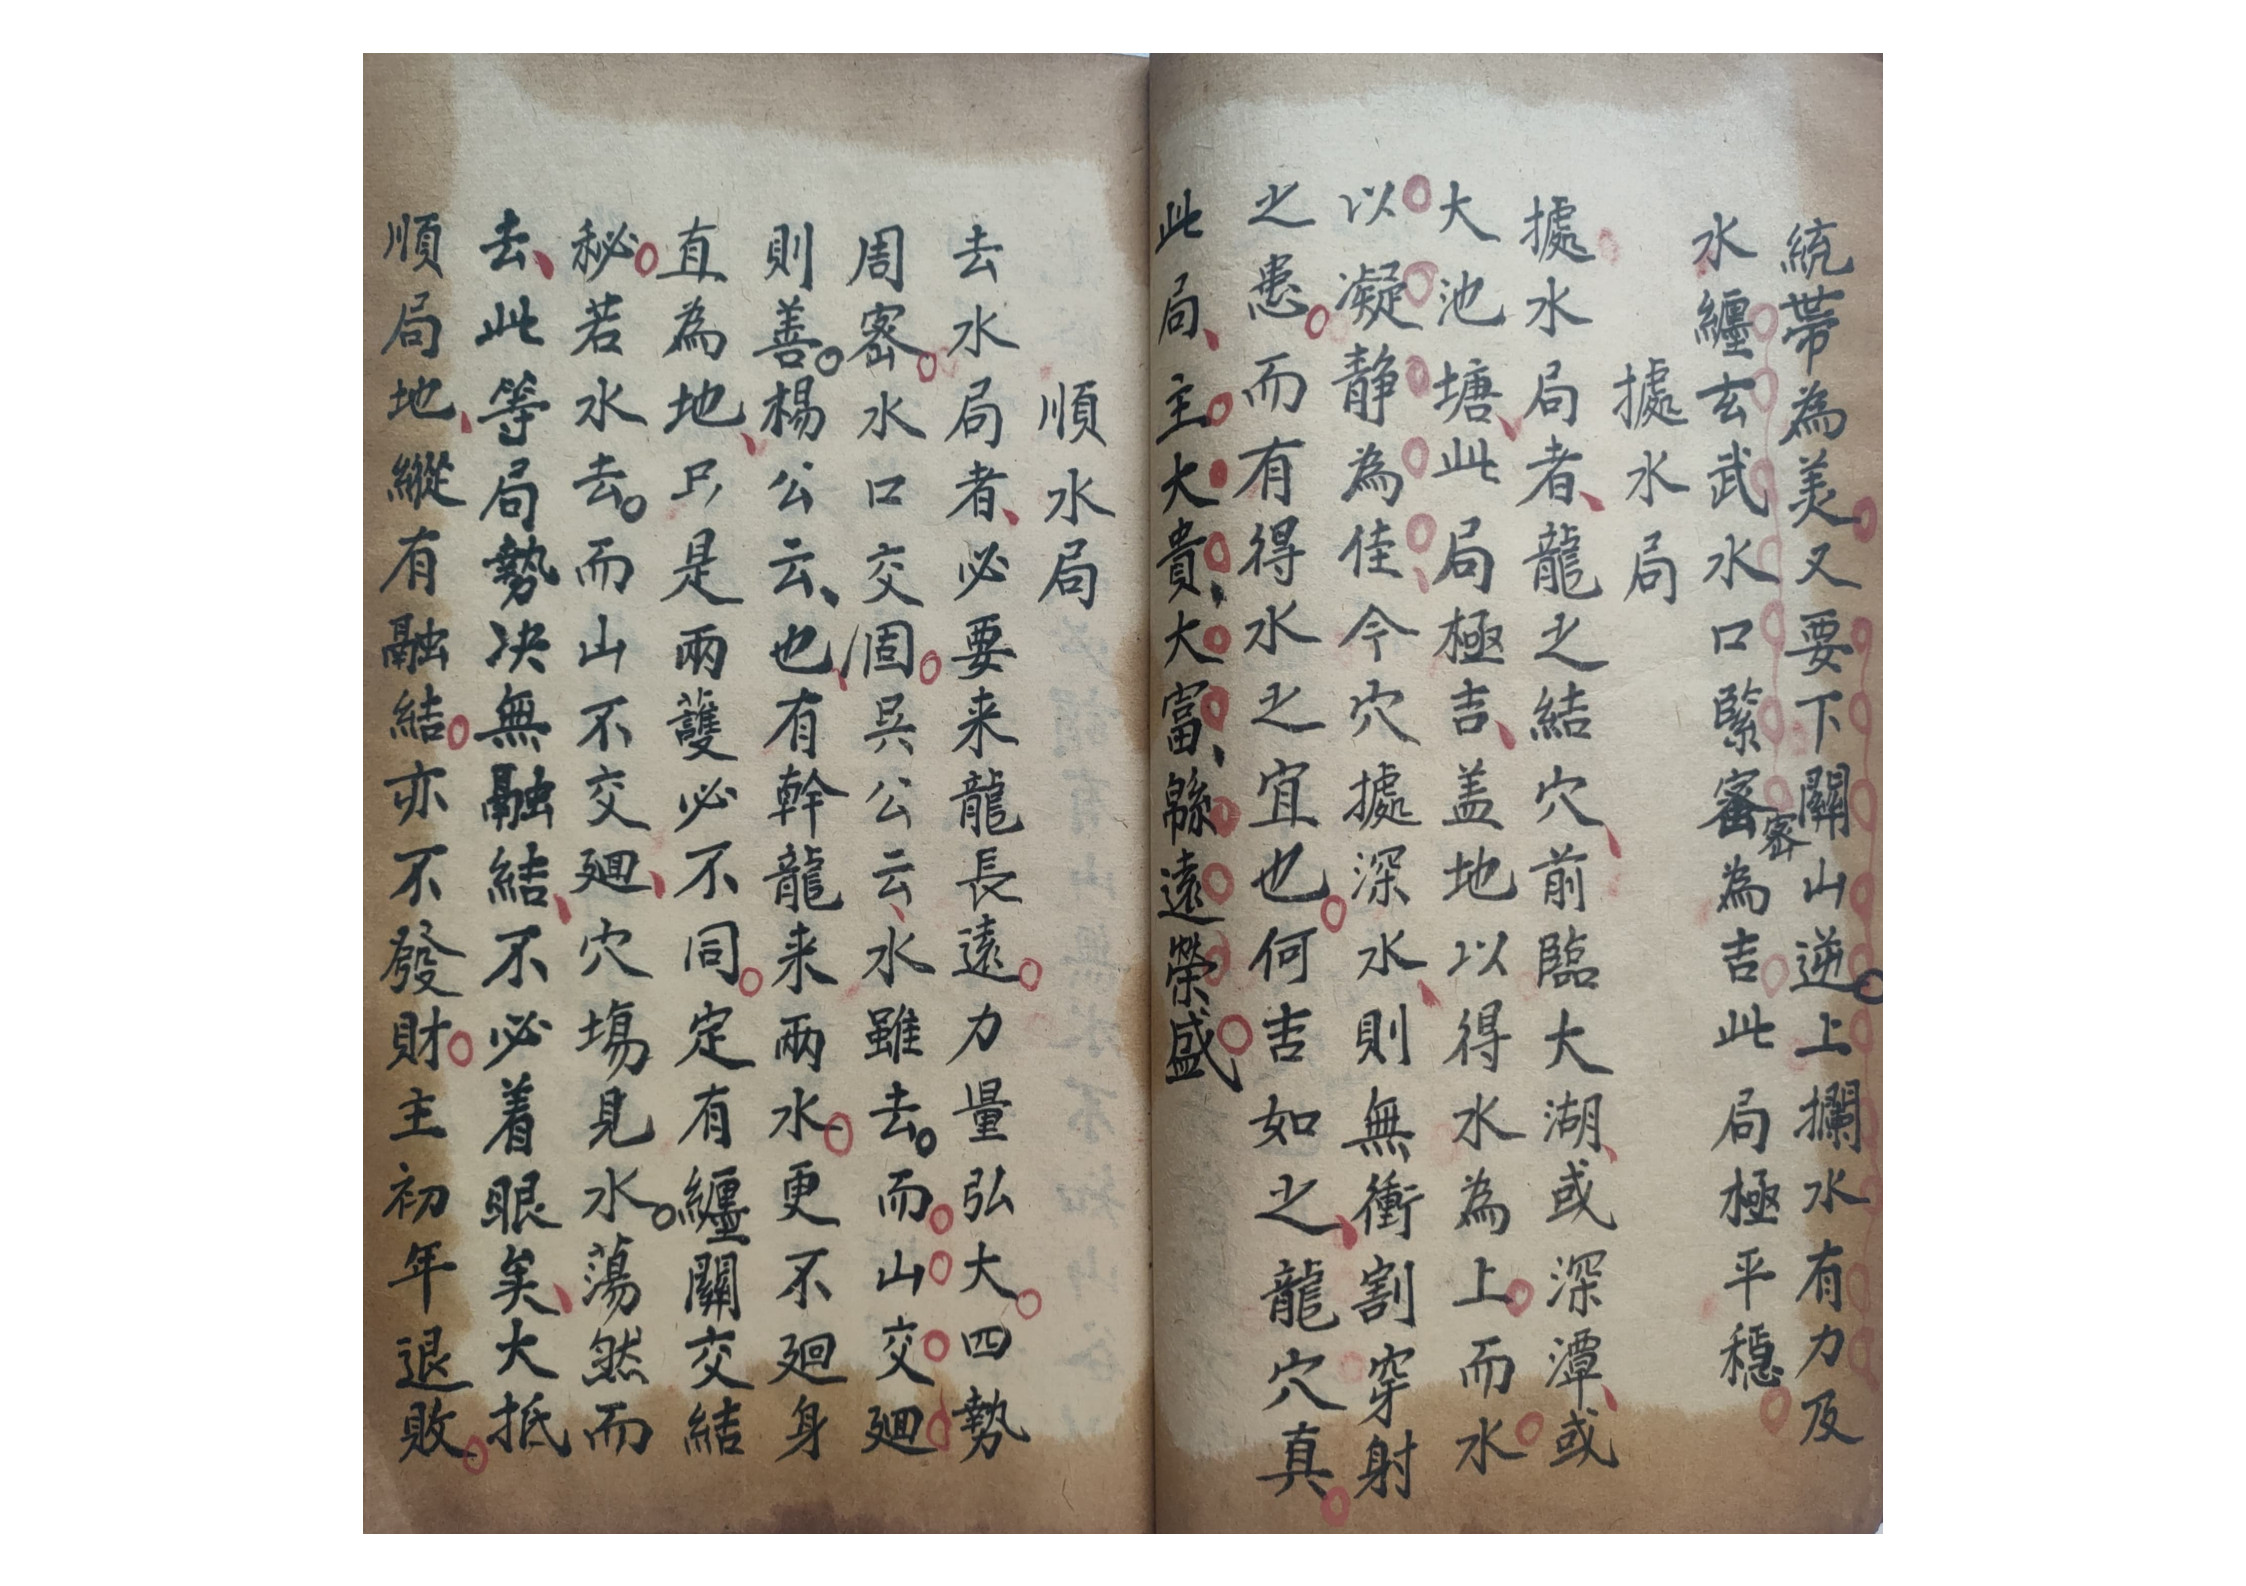 統帶為美又要下關山逆上攔水有力及
水纏玄武水口緊審密為吉此局極平穩
據水局
據水局者龍之結穴前臨大湖或深潭或
大池塘此局極吉盖地以得水為上而水
以凝静為佳今穴據深水則無衝割穿射
之患而有得水之宜也何吉如之龍穴真
此局主大貴大富綿遠榮盛
順水局
去水局者必要来龍長遠力量弘大四勢
周密水口交固吳公云水雖去而山交廻
則善楊公云也有幹龍来兩水更不廻身
直為地只是兩護必不同定有纏關交結
秘若水去而山不交廻穴塲見水蕩然而
去此等局勢决無融結不必着眼矣大抵
順局地縱有融結亦不發財主初年退敗